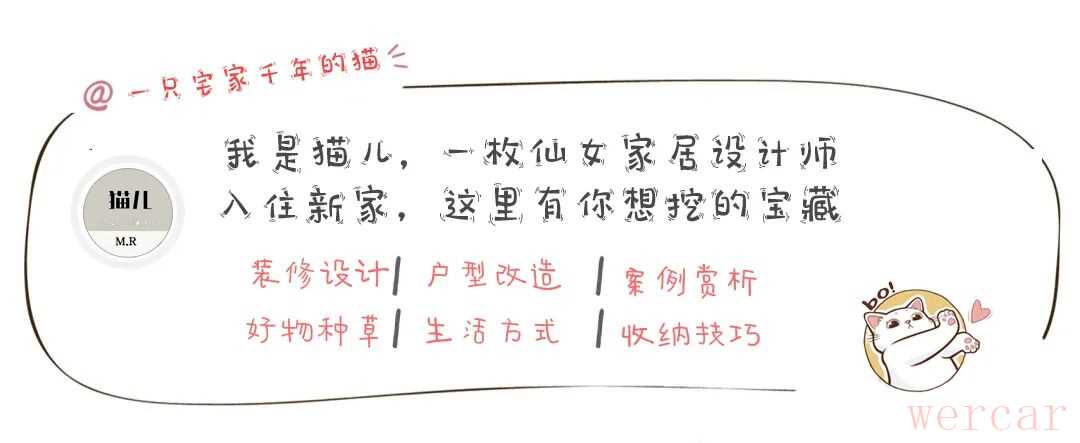 @一只宅家千年的猫
我是猫儿，一枚仙女家居设计师
入住新家，这里有你想挖的宝藏
猫儿
M.R
装修设计 | 户型改造 | 案例赏析
好物种草 | 生活方式 | 收纳技巧
bo!
wercar